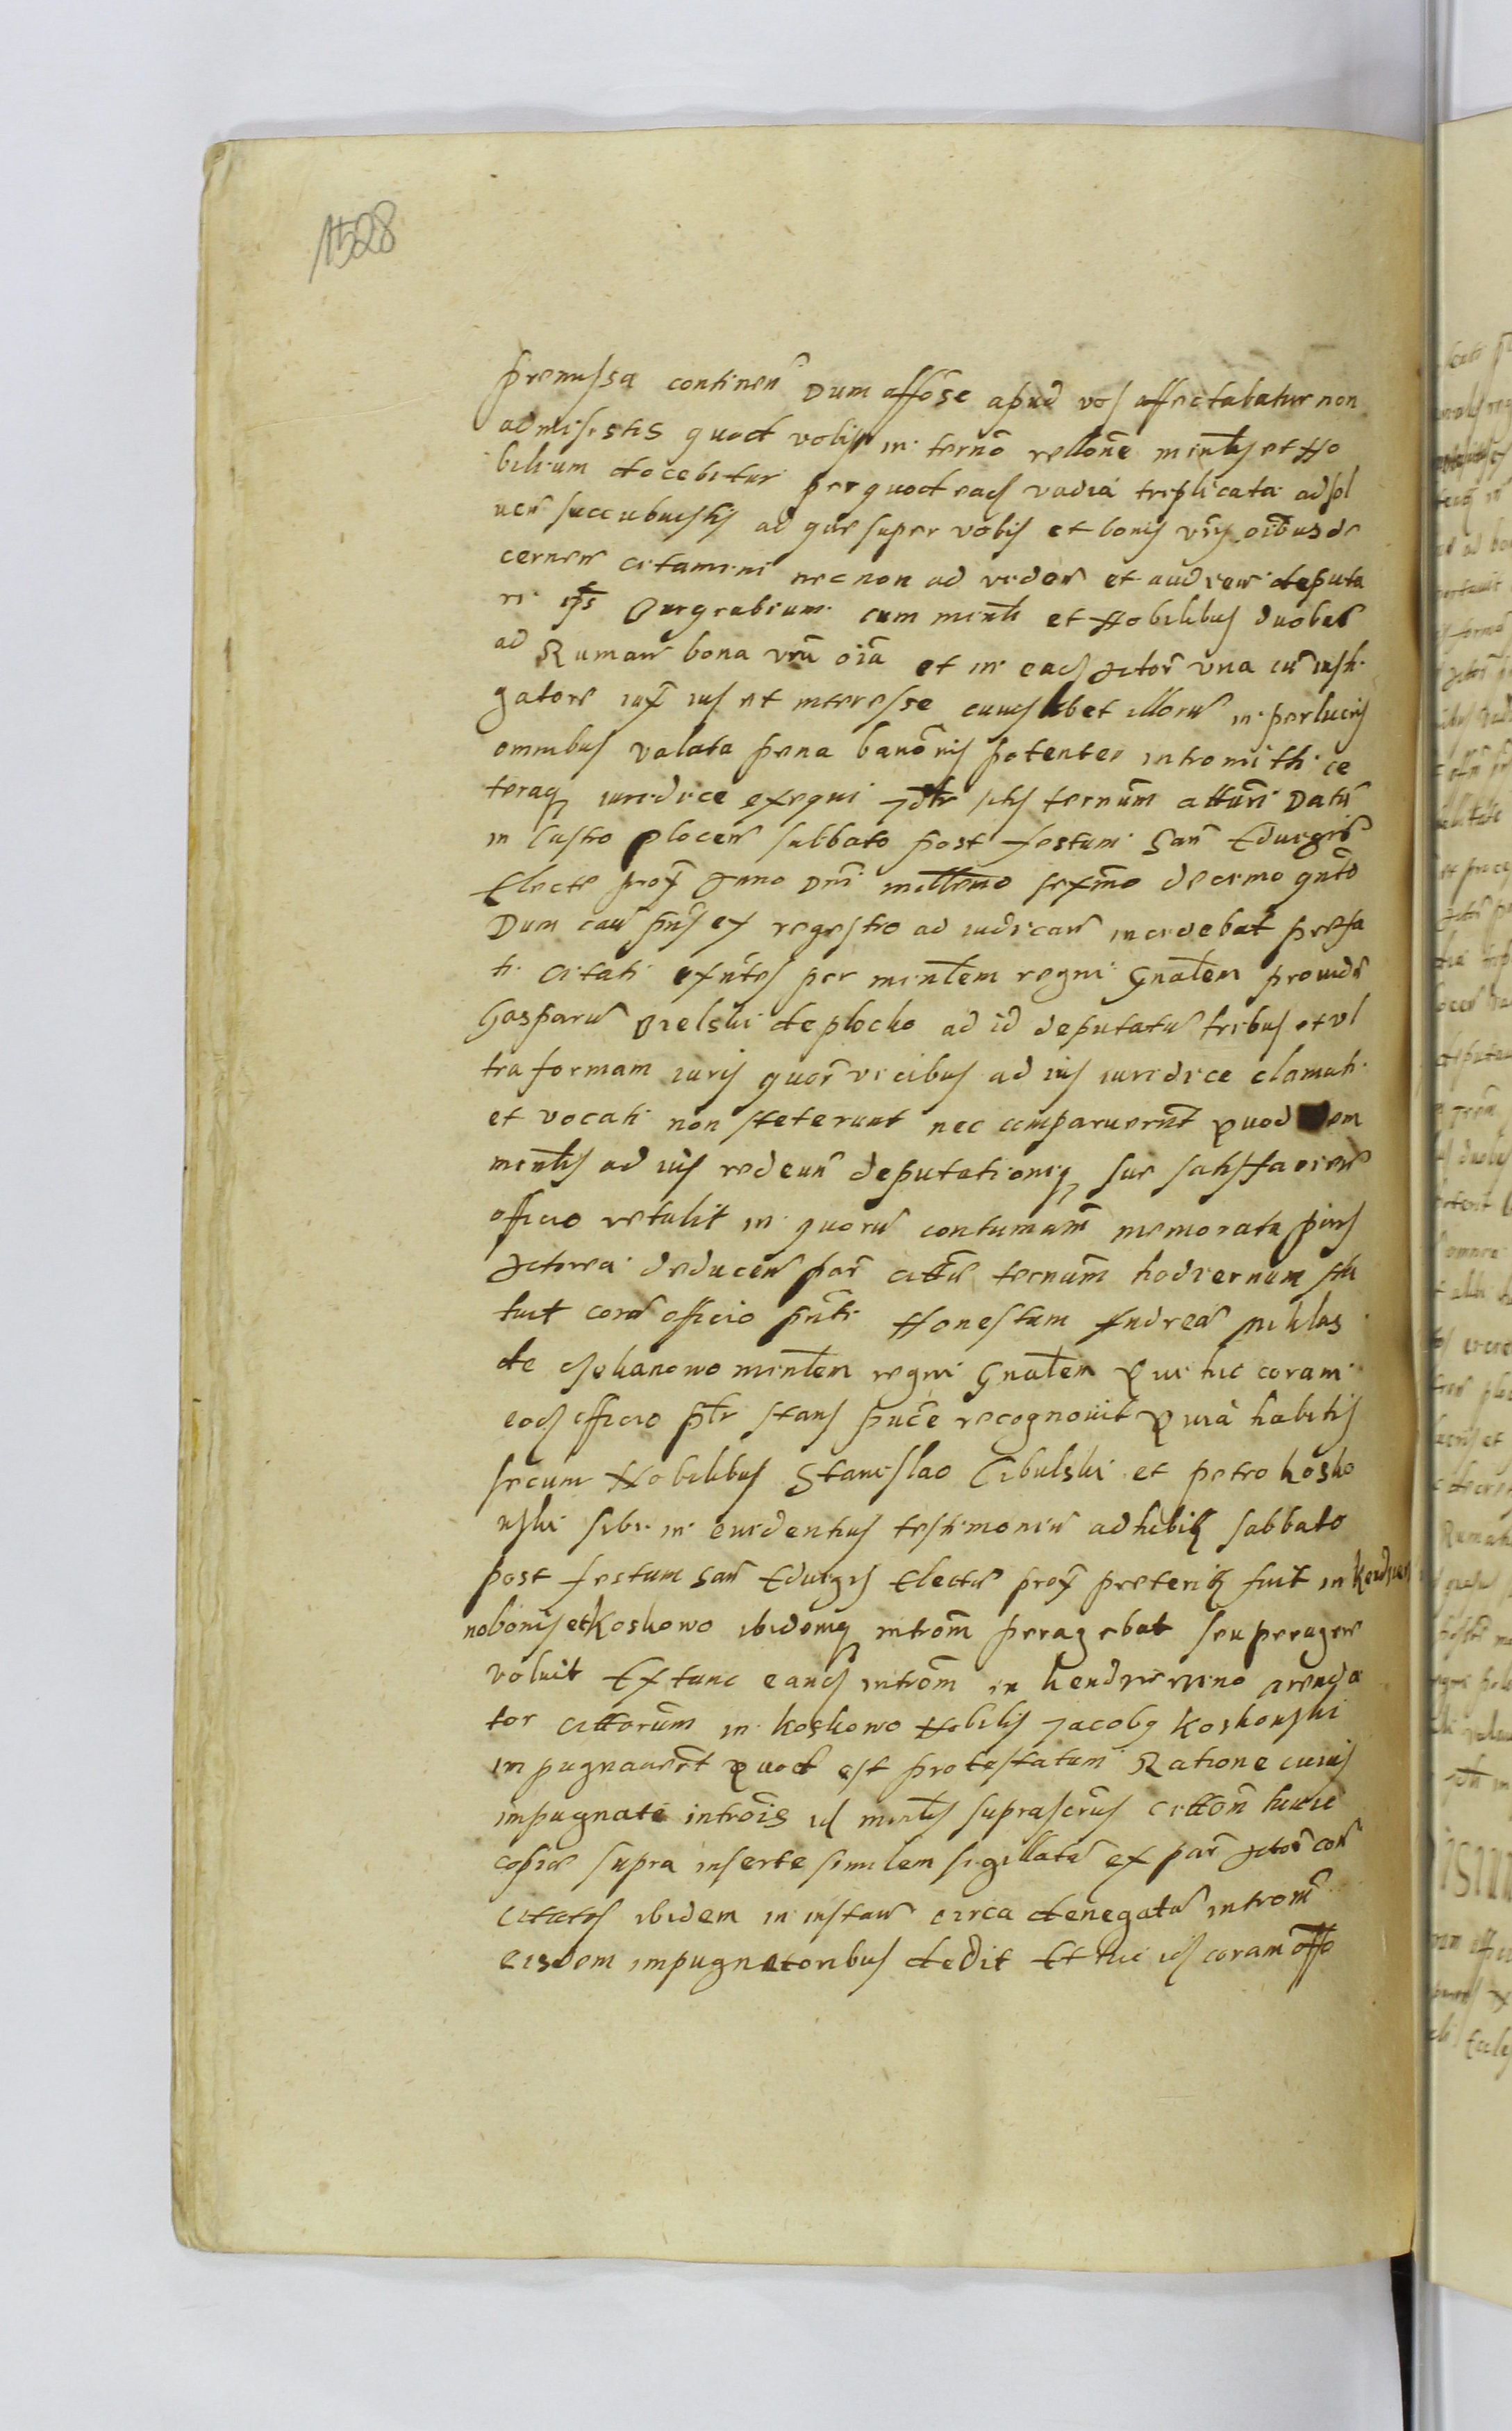 1528
premissa continen Dum affose apud vos affectabatur non
admisistis quod vobis in termo rellone minlis et No
bilium docebitur per quod eadem vadia triplicata adsol
uen succubuistis ad que super vobis et bonis vris oibus de
cernen citamini nec non ad viden et audien deputa
ri Burgrabium cum minli et Nobilibus duobus
ad Ruman bona vra oia et in eadem Actor vna cum insti
gatore iux ius et interesse cuiuslibet illorum in perlucris
omnibus valata pena banonis potenter intromitti ce
teraq iuridice exequi ternum atturi Datum
in Castro plocen sabbato post festum San Eduigis
Electe prox Anno Dni millemo sexmo decimo qnto
Dum cau pns ex regestro ad iudican incidebat prefa
ti Citati exntes per minlem regni Gnalem prouidum
Gasparum Bielski de plocko ad id deputatum tribus et vl
tra formam iuris quor vicibus ad ius iuridice clamati
et vocati non steterunt nec comparuernt Quod idem
minlis ad ius redeun deputationiq sue satisfacien
officio retulit in quorum contumam memorata pars
Actorea deducen par citte ternum hodiernum sta
tuit coram officio pnti Honestum Andream miklas
de Cjekanowo minlem regni Gnalem Qui hic coram
eodem officio plr stans puce recognouit Quia habitis
secum Nobilibus Stanislao Cibulski et petro kosko
uski sibi in euidentius testimonium adhibitis sabbato
post festum San Eduigis Electe prox preteritis fuit in Kendzier
no bonis et Koskowo ibidemq introm peragebat seu peragere
voluit Ex tunc eandem introm in kendzierzino arenda
tor citterum in koskowo Nobilis Jacobq Koskouski
impugnauert Quod est protestatum Ratione cuius
impugnate introis id minlis suprascrus citton huic
copie supra inserte similem sigillatam ex par Actor con
citatos ibidem in instan circa denegatam introm
eisdem impugnatoribus dedit Et hic id coram offo